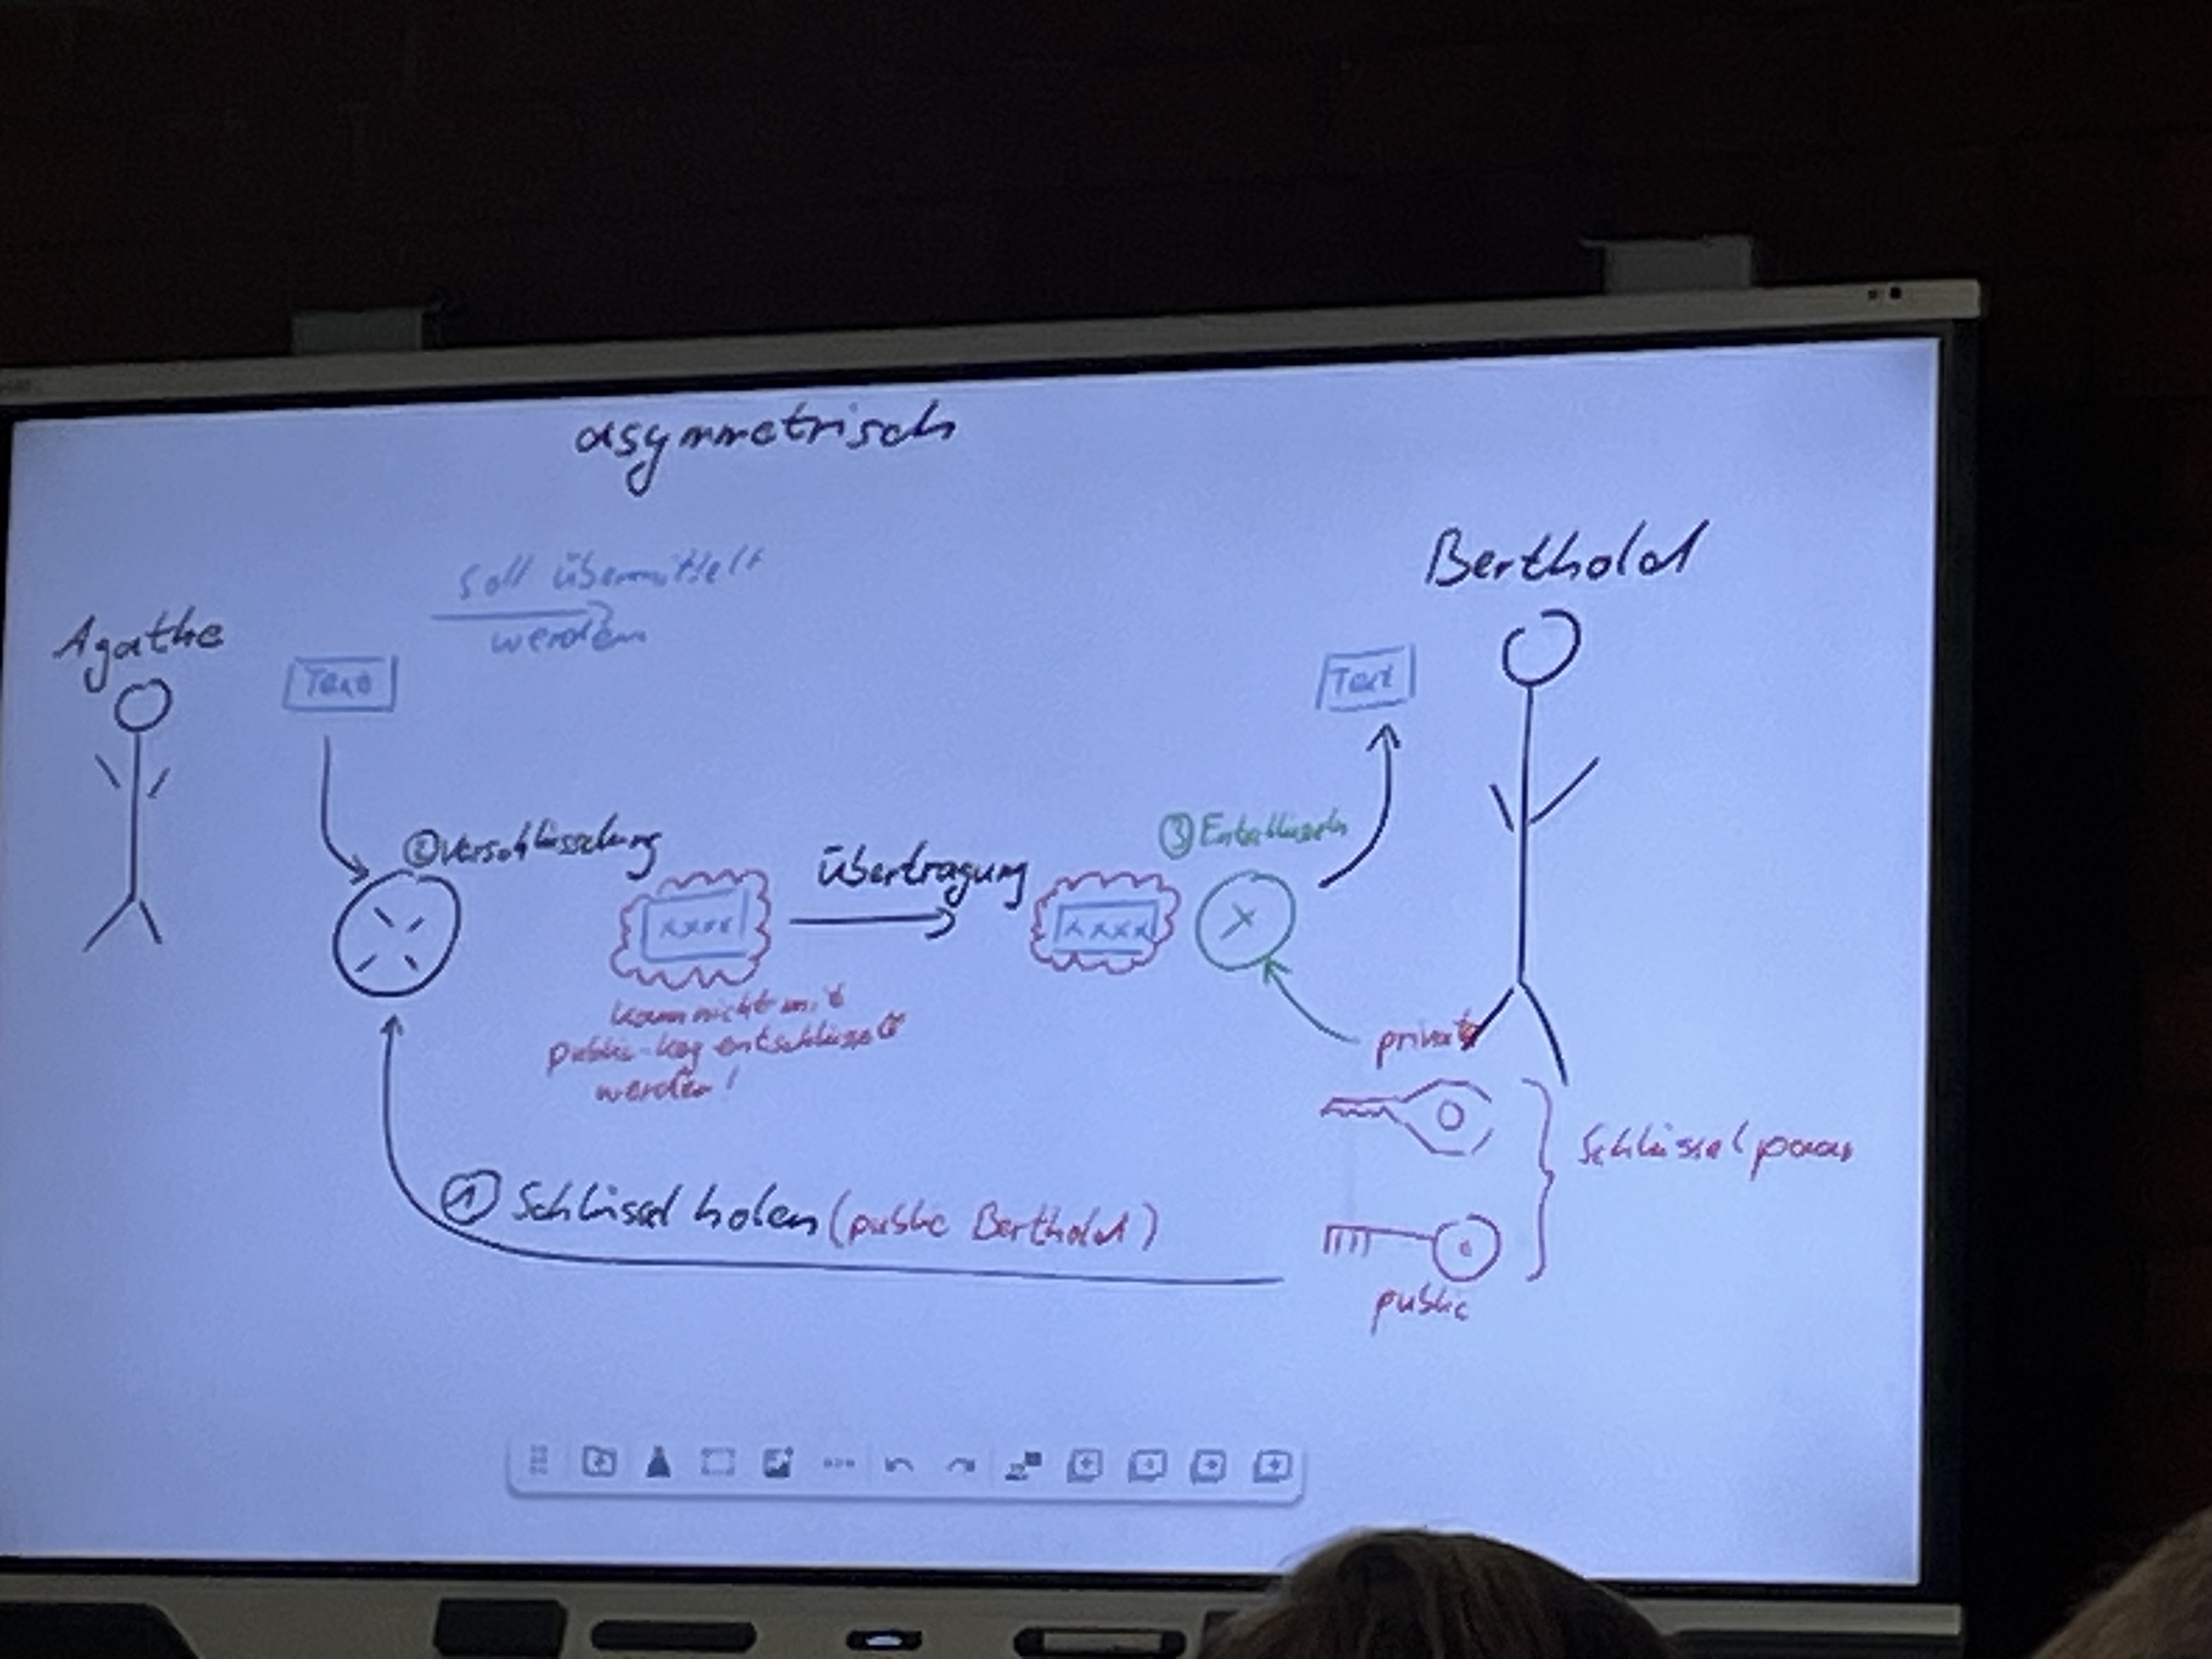 asymmetrisch
Soll übermittelt
werden
Berthold
Agathe
Text
Text
② Verschlüsselung
Übertragung
③ Entschlüsseln
xxxx
xxxx
kann nicht mit
public-key entschlüsselt
werden!
private
Schlüsselpaar
① Schlüssel holen (public Berthold)
public